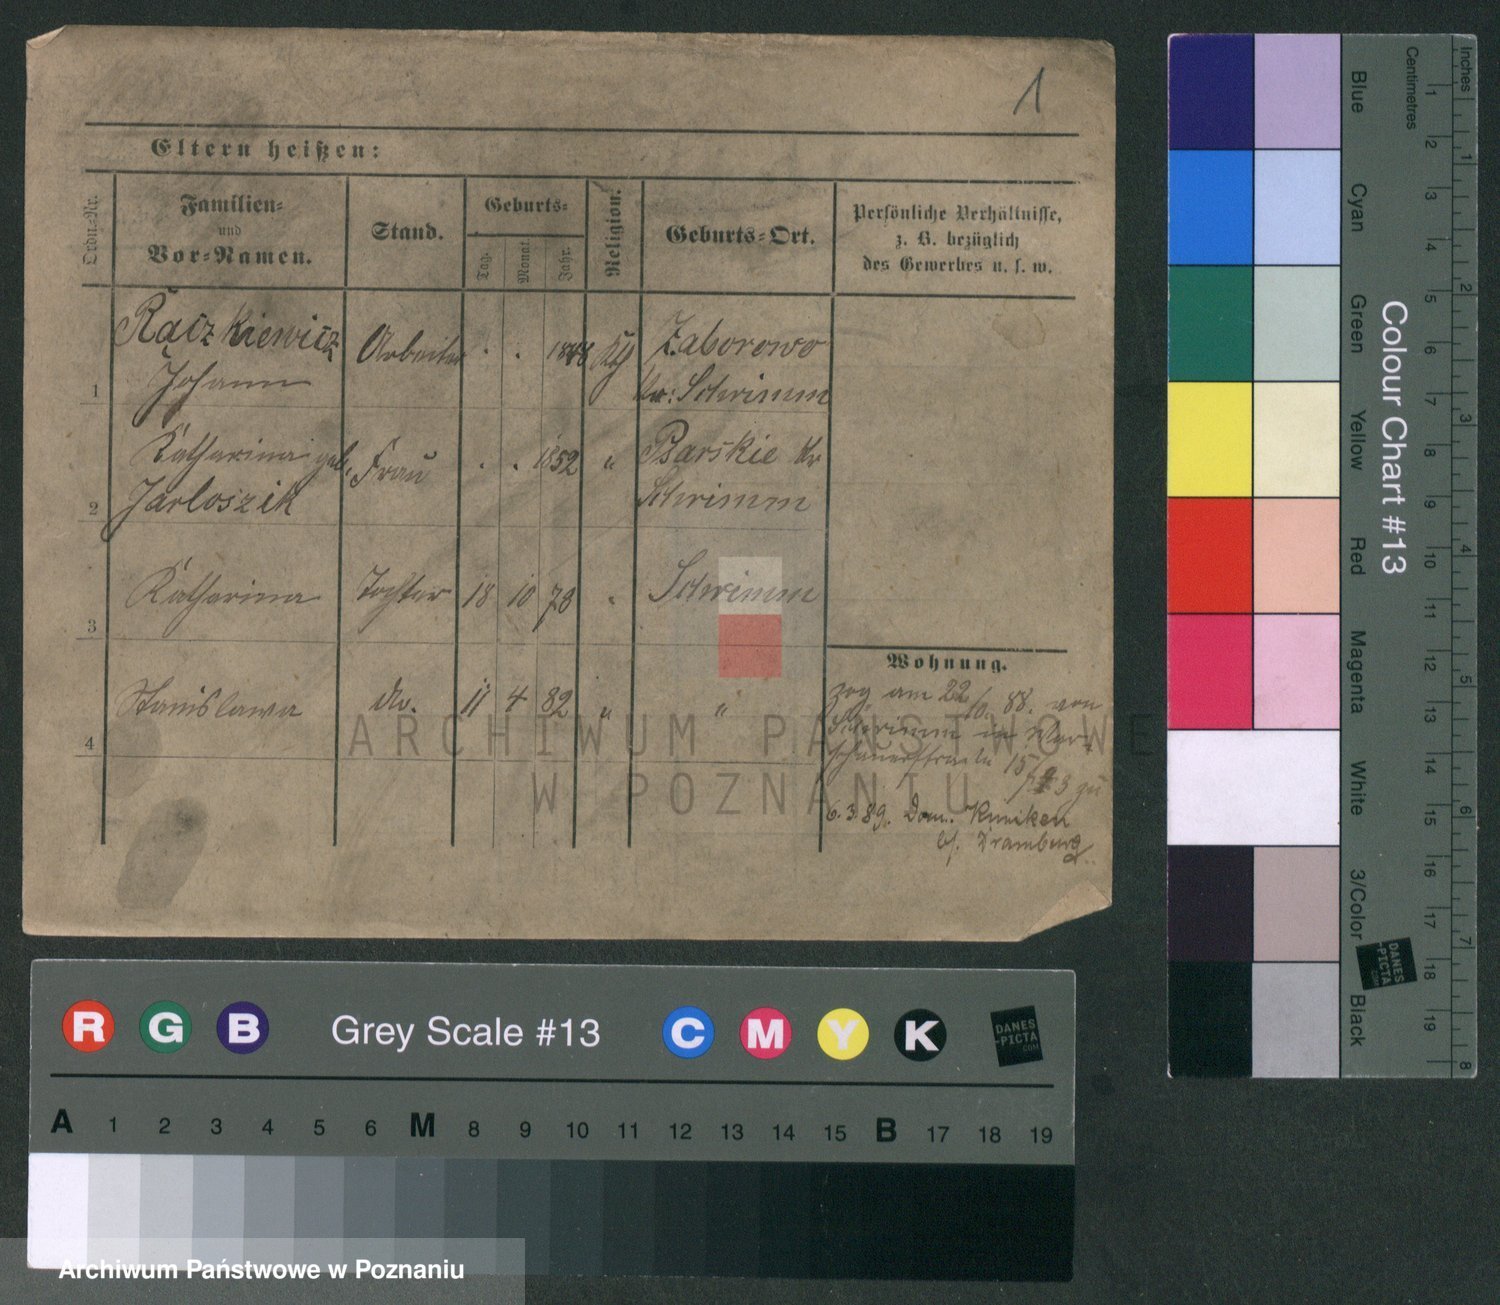 1
Eltern heißen:
Ordn.-Nr.
Familien-
und
Vor-Namen.
Stand.
Geburts-
Tag.
Monat.
Jahr.
Religion.
Geburts-Ort.
Persönliche Verhältnisse,
z. B. bezüglich
des Gewerbes u. s. w.
Raczkiewicz
Johann
Arbeiter
1848
Kth
Zaborowo
Kr: Schrimm
1
Katharina geb.
Jarloszik
Frau
1852
"
Psarskie Kr
Schrimm
2
Katharina
Tochter
18 10 78
Schrimm
3
Stanislawa
do.
11 4 82
"
"
4
Wohnung.
zog am 22/10. 88. von
Schrimm in
15/
zu
6.3.89. Dom.
b/. Dramburg
ARCHIWUM PAŃSTWOWE
W POZNANIU
R G B
Grey Scale #13
C M Y K
DANES
-PICTA
.COM
A 1 2 3 4 5 6 M 8 9 10 11 12 13 14 15 B 17 18 19
Archiwum Państwowe w Poznaniu
Colour Chart #13
Blue
Cyan
Green
Yellow
Red
Magenta
White
3/Color
Black
Centimetres
1 2 3 4 5 6 7 8 9 10 11 12 13 14 15 16 17 18 19
Inches
1 2 3 4 5 6 7 8
DANES
-PICTA
.COM